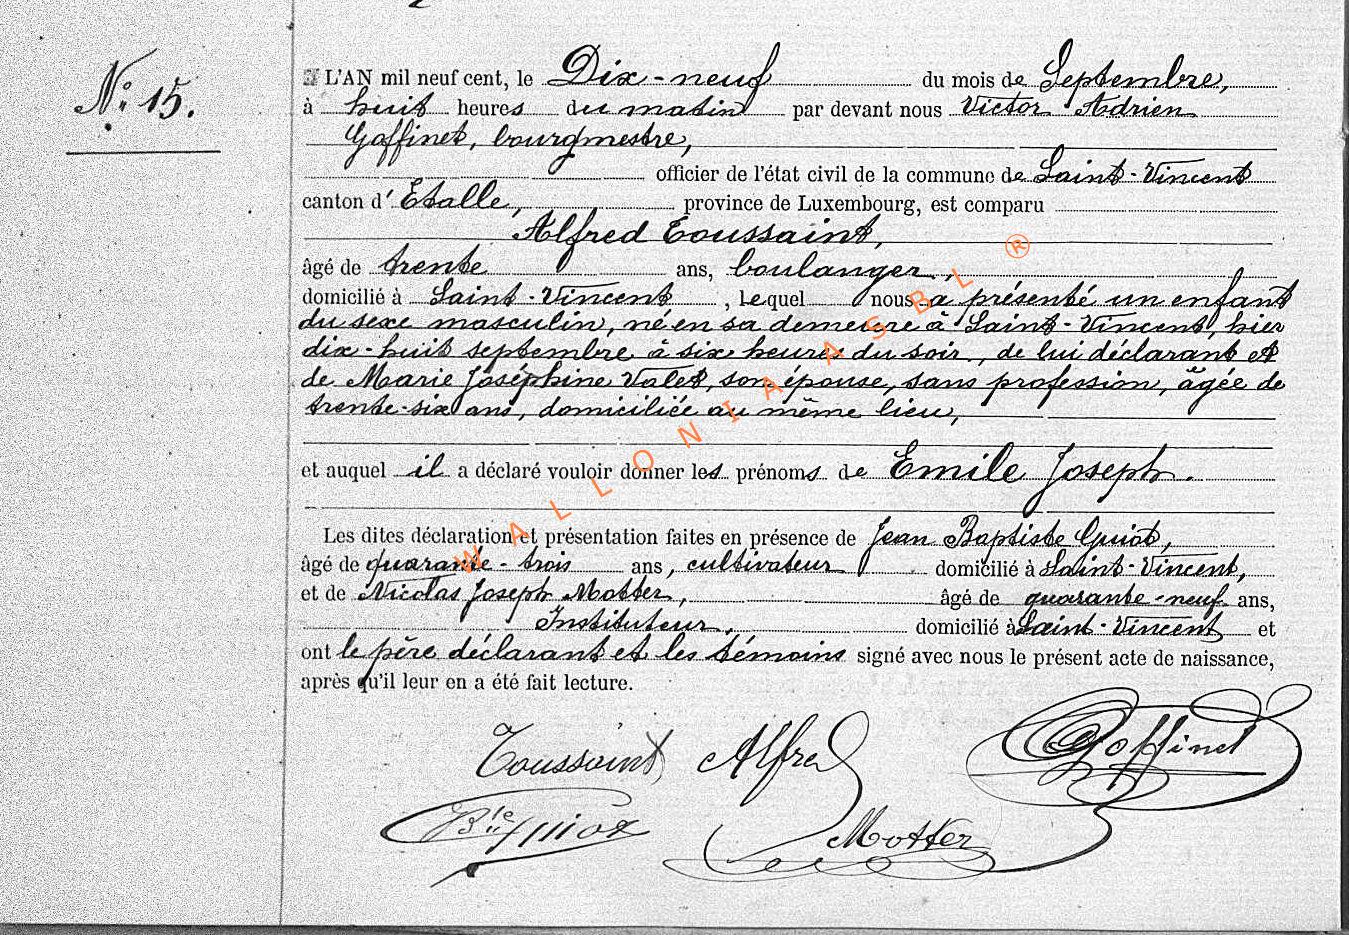 N° 15.
L'AN mil neuf cent, le Dix-neuf du mois de Septembre,
à huit heures du matin par devant nous Victor Adrien
Goffinet, bourgmestre,
officier de l'état civil de la commune de Saint-Vincent
canton d'Etalle, province de Luxembourg, est comparu
Alfred Toussaint,
âgé de trente ans, boulanger,
domicilié à Saint-Vincent, lequel nous a présenté un enfant
du sexe masculin, né en sa demeure à Saint-Vincent, hier
dix-huit septembre à six heures du soir, de lui déclarant et
de Marie Joséphine Valet, son épouse, sans profession, âgée de
trente-six ans, domiciliée au même lieu,
et auquel il a déclaré vouloir donner les prénoms de Emile Joseph.
Les dites déclaration et présentation faites en présence de Jean Baptiste Guiot,
âgé de quarante-trois ans, cultivateur domicilié à Saint-Vincent,
et de Nicolas Joseph Motter, âgé de quarante-neuf ans,
Instituteur, domicilié à Saint-Vincent et
ont le père déclarant et les témoins signé avec nous le présent acte de naissance,
après qu'il leur en a été fait lecture.
Toussaint Alfred Goffinet
Bte Guiot Motter
WALLONIA ASBL ®